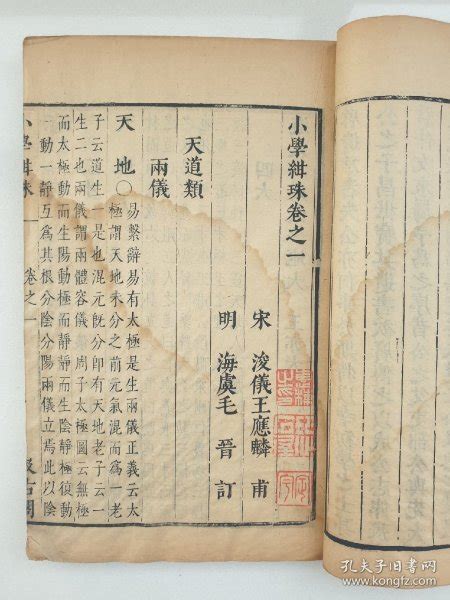 小學紺珠卷之一
宋 浚儀王應麟 甫
明 海虞毛 晉 訂
天道類
兩儀
天 地○易繫辭易有太極是生兩儀正義云太
極謂天地未分之前元氣混而為一老
子云道生一是也混元既分即有天地老子云一
生二也兩儀謂兩體容儀周子太極圖云無極
而太極動而生陽動極而靜靜而生陰靜極復動
一動一靜互為其根分陰分陽兩儀立焉此以陰
小學紺珠 卷之一 汲古閣
孔夫子旧书网
www.kongfz.com